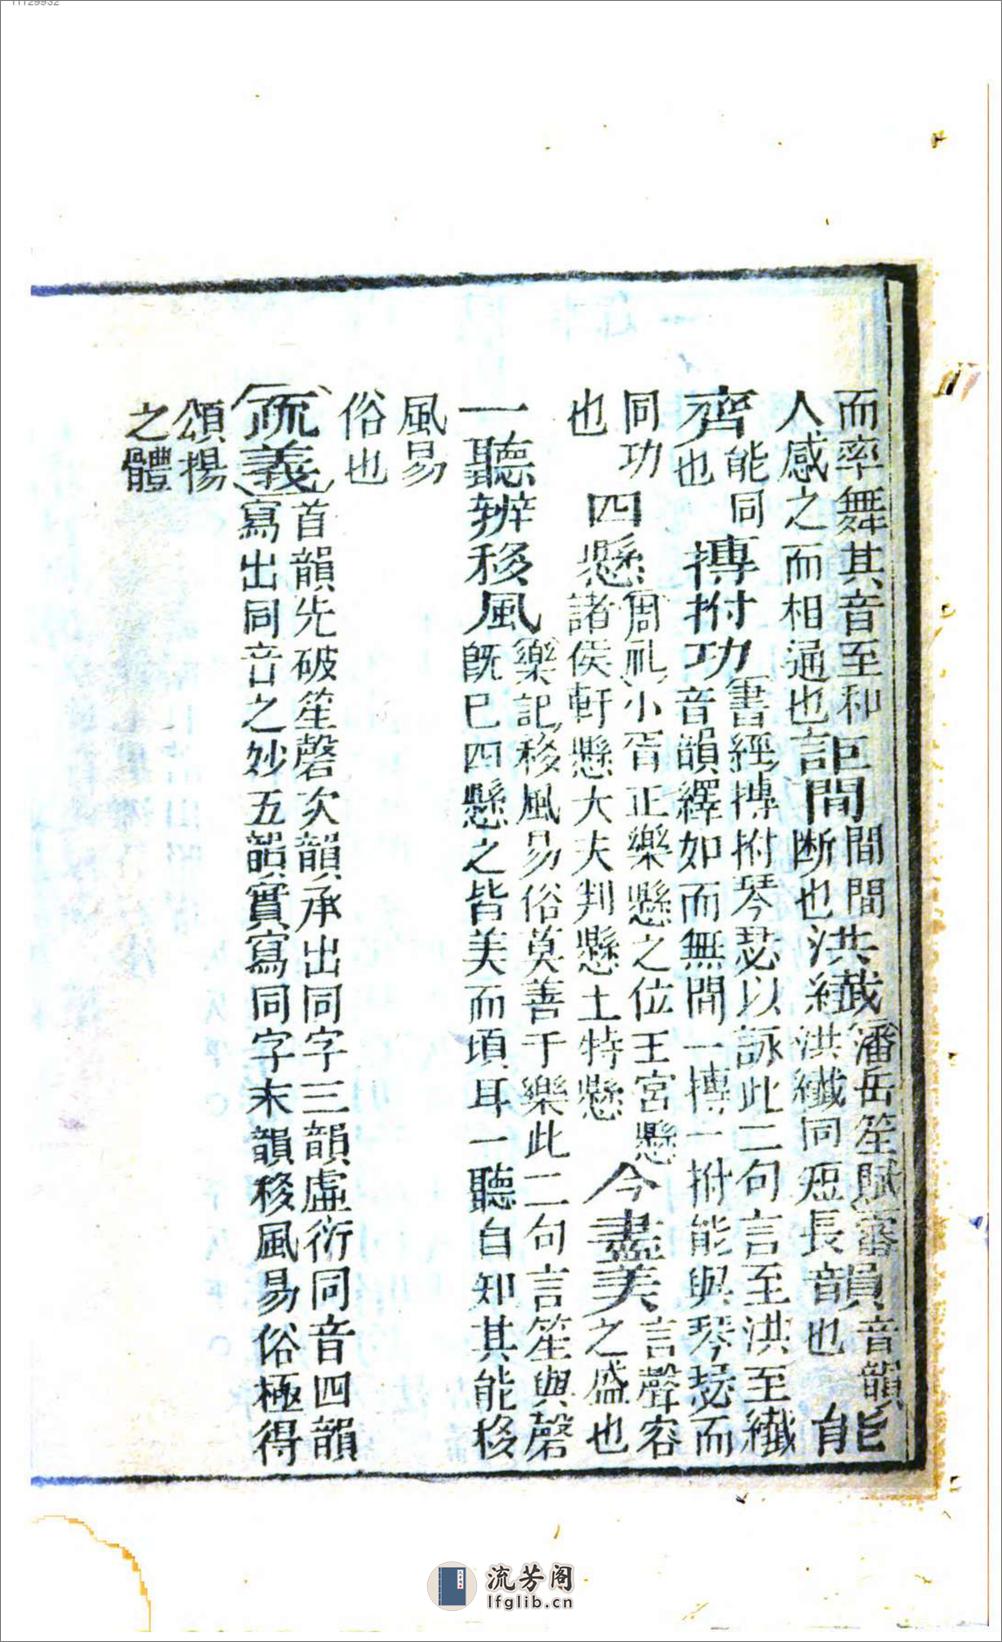 而率舞其音至和人感之而相通也詎間間間断也洪纖韻潘岳笙賦審洪纖同短長音韻也能
齊能同也搏拊功書經搏拊琴瑟以詠此二句言至洪至纖音韻繹如而無間一摶一拊能與琴瑟而
同功也四懸周礼小胥正樂懸之位王宮懸諸侯軒懸大夫判懸士特懸今盡美言聲容之盛也
一聽辨移風樂記移風易俗莫善于樂此二句言笙與磬既已四懸之皆美而項耳一聽自知其能移
風易俗也
疏義首韻先破笙磬次韻承出同字三韻虛衍同音四韻寫出同音之妙五韻實寫同字末韻移風易俗極得
頌揚之體
流芳阁
lfglib.cn